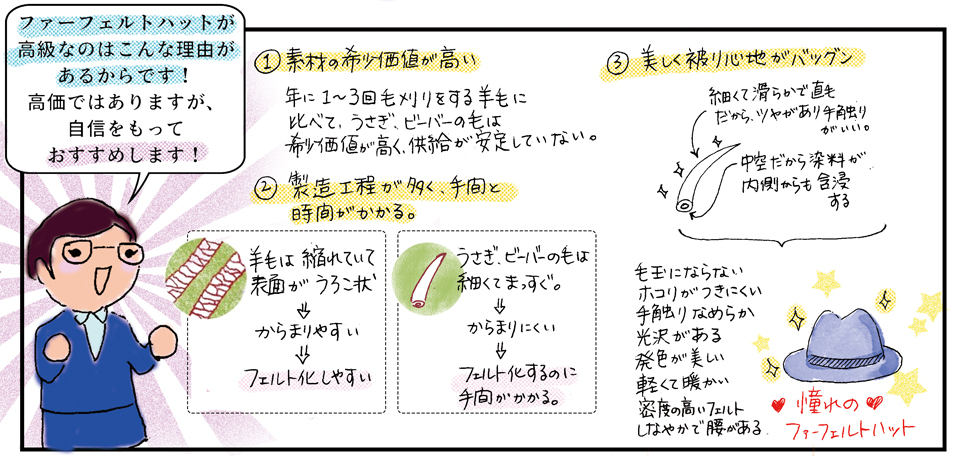 ファーフェルトハットが
高級なのはこんな理由が
あるからです！
高価ではありますが、
自信をもって
おすすめします！
① 素材の希少価値が高い
年に1〜3回毛刈りをする羊毛に
比べて、うさぎ、ビーバーの毛は
希少価値が高く、供給が安定していない。
② 製造工程が多く、手間と
時間がかかる。
羊毛は縮れていて
表面がうろこ状
⇓
からまりやすい
⇓
フェルト化しやすい
うさぎ、ビーバーの毛は
細くてまっすぐ。
↓
からまりにくい
⇓
フェルト化するのに
手間がかかる。
③ 美しく被り心地がバツグン
細くて滑らかで直毛
だから、ツヤがあり手触り
がいい。
中空だから染料が
内側からも含浸
する
毛玉にならない
ホコリがつきにくい
手触りなめらか
光沢がある
発色が美しい
軽くて暖かい
密度の高いフェルト
しなやかで腰がある
♥ 憧れの ♥
ファーフェルトハット